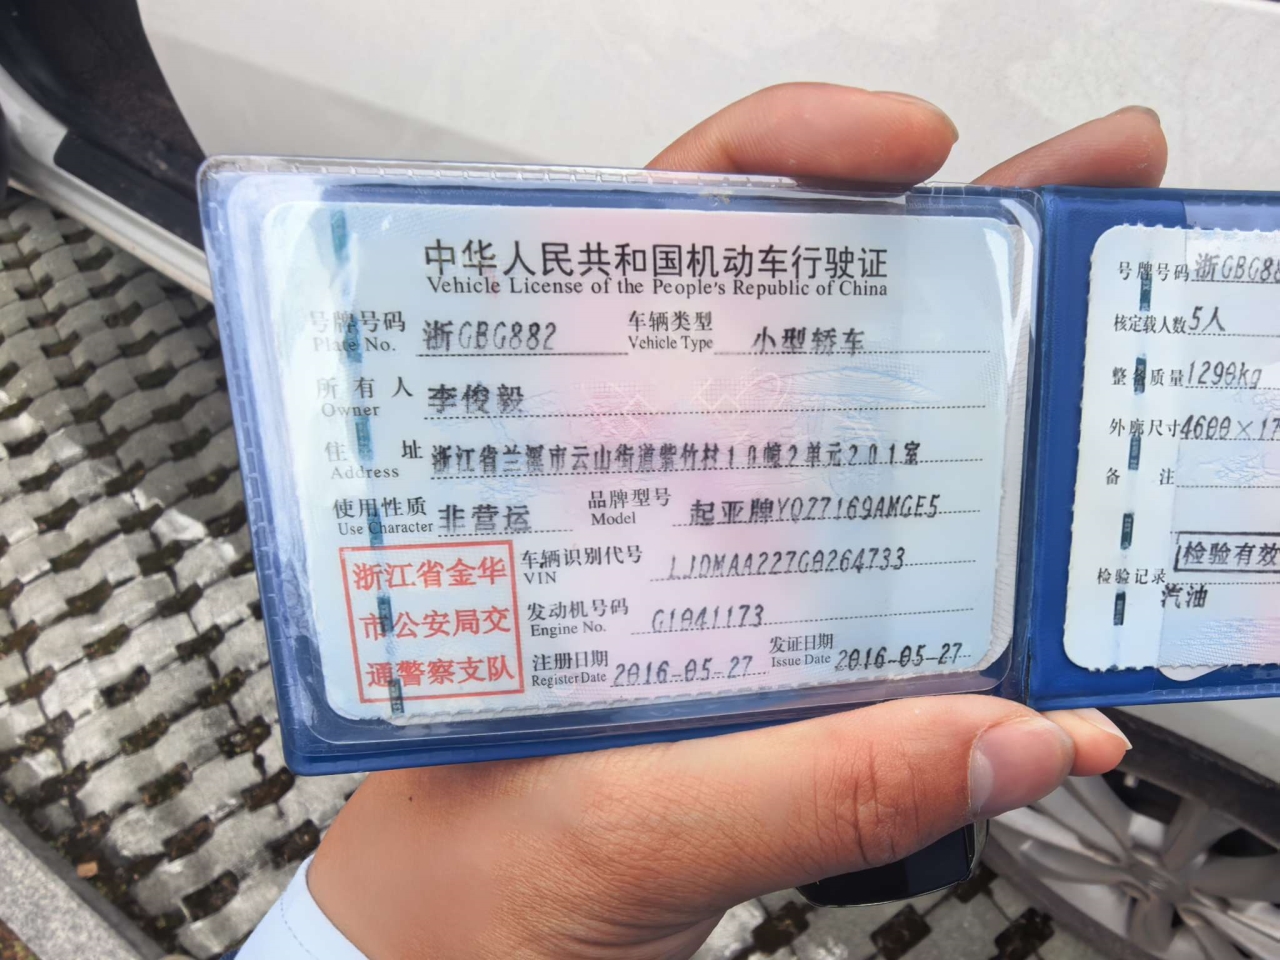 中华人民共和国机动车行驶证
Vehicle License of the People's Republic of China
号牌号码 浙GBG882 车辆类型 小型轿车
Plate No. Vehicle Type
所有人 李俊毅
Owner
住址 浙江省兰溪市云山街道紫竹村10幢2单元201室
Address
使用性质 非营运 品牌型号 起亚牌YQZ7169AMGE5
Use Character Model
浙江省金华
市公安局交
通警察支队
车辆识别代号 LJDMAA227G0264733
VIN
发动机号码 G1041173
Engine No.
注册日期 2016-05-27 发证日期 2016-05-27
Register Date Issue Date
号牌号码 浙GBG88
核定载人数 5人
整备质量 1290kg
外廓尺寸 4600×17
备注
检验有效
检验记录
汽油